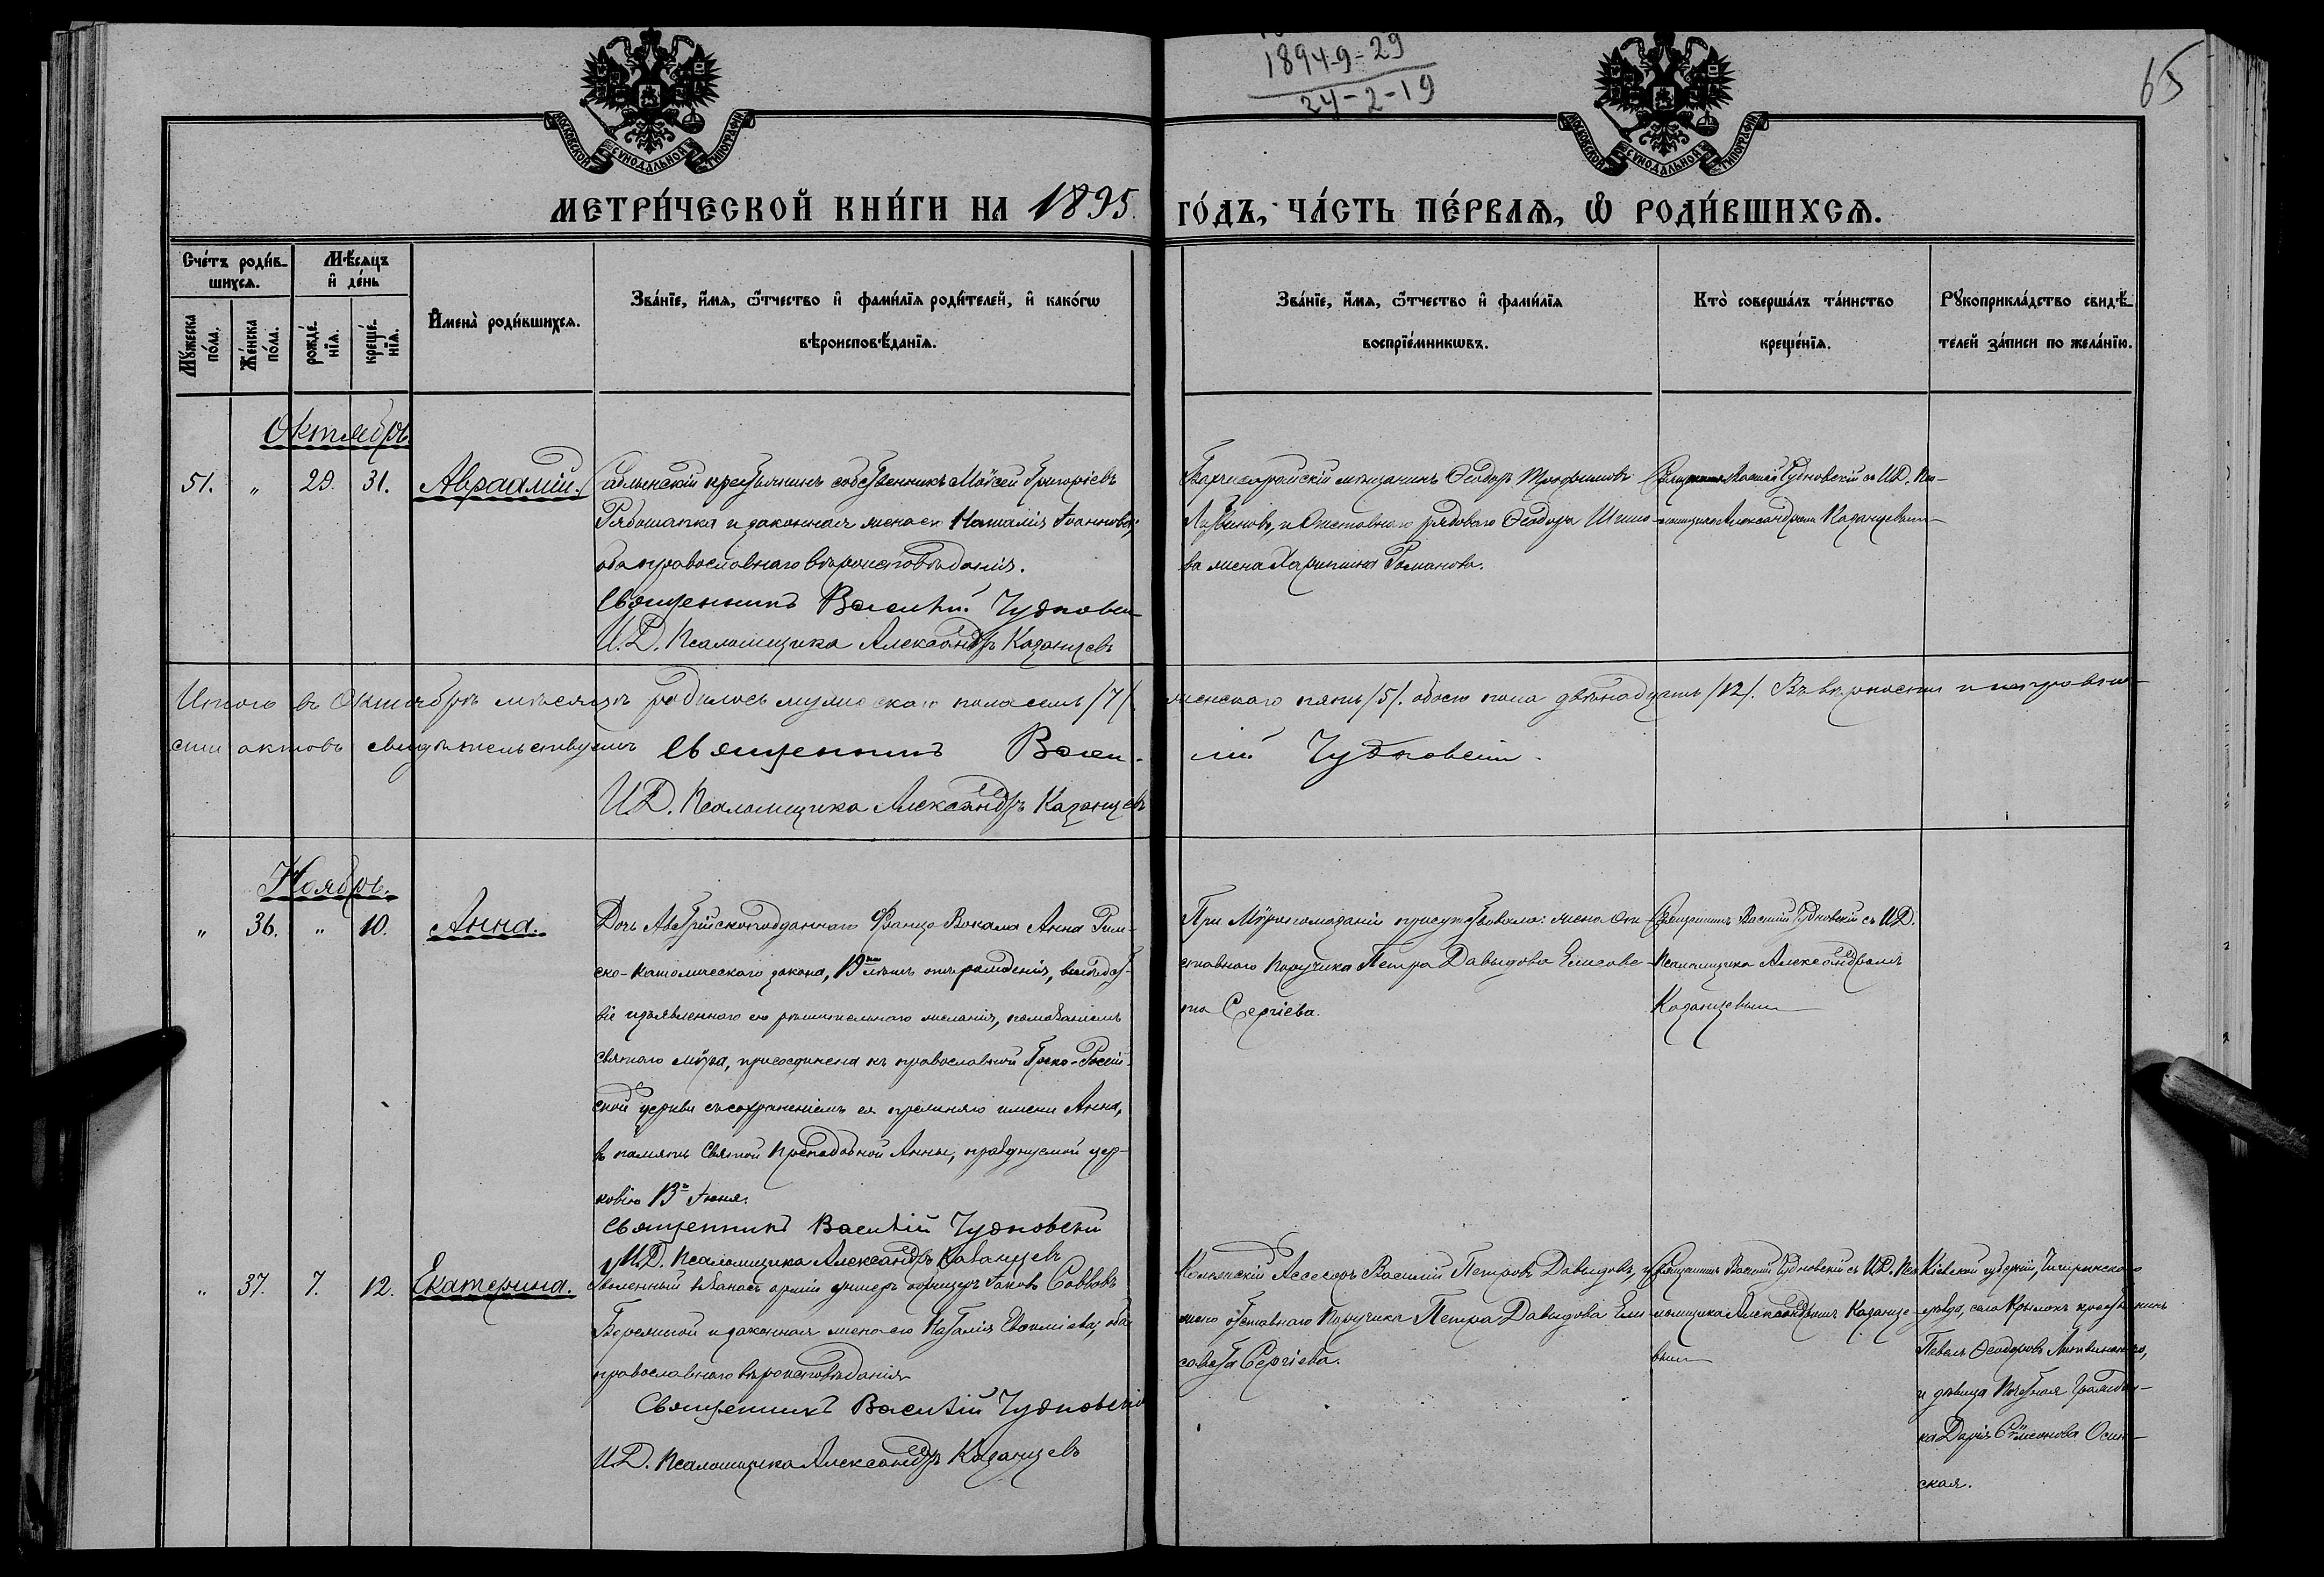 1894-9-29
24-2-19
65
МОСКОВСКОЙ СУНОДАЛЬНОЙ ТИПОГРАФІИ
МОСКОВСКОЙ СУНОДАЛЬНОЙ ТИПОГРАФІИ
МЕТРИ́ЧЕСКОЙ КНИ́ГИ НА 1895 ГО́ДЪ, ЧА́СТЬ ПЕ́РВАѦ, Ѡ҆ РОДИ́ВШИХСѦ.
Сче́тъ роди́в-
шихсѧ.
Мѣ́сѧцъ
и҆ де́нь
Мꙋ́жеска
по́ла.
Же́нска
по́ла.
рожде́-
нїѧ.
креще́-
нїѧ.
И҆мена̀ роди́вшихсѧ.
Зва́нїе, и҆́мѧ, ѻ҆́тчество и҆ фами́лїѧ роди́телей, и҆ како́гѡ
вѣроисповѣ́данїѧ.
Зва́нїе, и҆́мѧ, ѻ҆́тчество и҆ фами́лїѧ
воспрїе́мникѡвъ.
Кто̀ соверша́лъ та́инство
креще́нїѧ.
Рꙋкоприкла́дство свидѣ́-
телей за́писи по жела́нїю.
Октябрь.
51. „ 29. 31. Авраамій.
Саблынскій крестьянинъ собственникъ Моѵсей Григоріевъ
Рябошапка и законная жена его Наталія Іоаннова;
оба православнаго вѣроисповѣданія.
Священникъ Василій Чудновскій
И.Д. Псаломщика Александръ Казанцевъ
Бахчисарайскій мѣщанинъ Ѳеодоръ Трофимовъ
Литвиновъ, и Отставнаго рядоваго Ѳеодора Шило-
ва жена Харитина Романова.
Священникъ Василій Чудновскій съ И.Д. Пса-
ломщика Александромъ Казанцевымъ
Итого въ Октябрѣ мѣсяцѣ родилось мужескаго пола семь /7/. женскаго пять /5/. обоего пола двѣнадцать /12/. Въ вѣрности и неправно-
сти актовъ свидѣтельствуемъ Священникъ Васи- лій Чудновскій
И.Д. Псаломщика Александръ Казанцевъ
Ноябрь.
„ 36. „ 10. Анна.
Дочь Австрійскоподданнаго Франца Вокала Анна Рим-
ско-католическаго закона, 19ти лѣтъ отъ рожденія, вслѣдст-
віе изъявленнаго ею рѣшительнаго желанія, помазаніемъ
святаго мѵра, присоединена къ православной Греко-Россій-
ской церкви съ сохраненіемъ ея прежняго имени Анна,
въ память Святой Преподобной Анны, празднуемой цер-
ковію 13го Іюня.
Священникъ Василій Чудновскій
И.Д. Псаломщика Александръ Казанцевъ
При Мѵропомазаніи присутствовала: жена От-
ставнаго Поручика Петра Давыдова Елисаве-
та Сергіева.
Священникъ Василій Чудновскій съ И.Д.
Псаломщика Александромъ
Казанцевымъ
„ 37. 7. 12. Екатерина.
Уволенный въ запасъ арміи унтеръ офицеръ Іаковъ Савовъ
Бережной и законная жена его Наталія Евѳиміева; оба
православнаго вѣроисповѣданія
Священникъ Василій Чудновскій
И.Д. Псаломщика Александръ Казанцевъ
Колежскій Ассесоръ Василій Петровъ Давыдовъ, и
жена отставнаго Поручика Петра Давыдова Ели-
савета Сергіева.
Священникъ Василій Чудновскій съ И.Д. Пса-
ломщика Александромъ Казанце-
вымъ
Кіевской губерніи, Чигиринскаго
уѣзда, села Крылокъ крестьянинъ
Павелъ Ѳеодоровъ Литвиненко,
и дѣвица Почетная Граждан-
ка Дарія Сѵмеонова Осин-
ская.